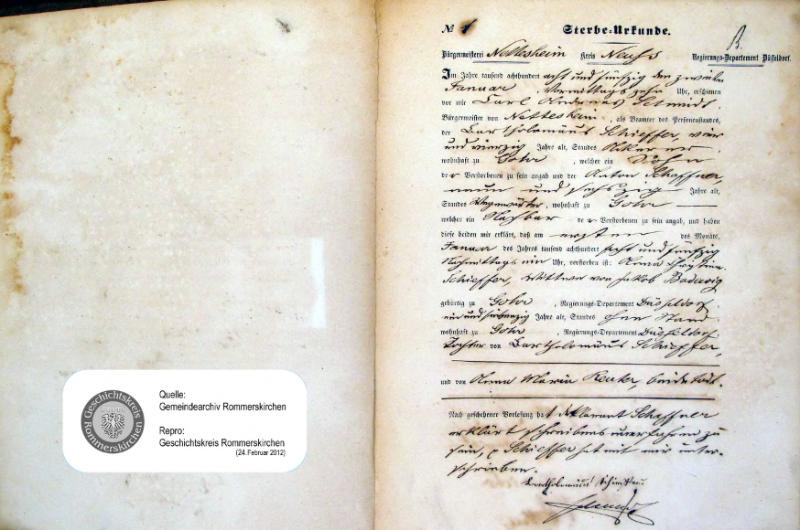 Geschichtskreis Rommerskirchen
Quelle:
Gemeindearchiv Rommerskirchen
Repro:
Geschichtskreis Rommerskirchen
(24.Februar 2012)
№ 1
Sterbe-Urkunde.
B.
Bürgermeisterei Nettesheim Kreis Neuss Regierungs-Departement Düsseldorf.
Im Jahre tausend achthundert acht und fünfzig den zweiten
Januar, Vormittags zehn Uhr, erschienen
vor mir Carl Andreas Schmidt,
Bürgermeister von Nettesheim, als Beamter des Personenstandes,
der Bartholomäus Schieffer, vier
und vierzig Jahre alt, Standes Ackerer
wohnhaft zu Gohr, welcher ein Sohn
der Verstorbenen zu sein angab und der Anton Schaffner,
neun und sechszig Jahre alt,
Standes wohnhaft zu Gohr
welcher ein Nachbar der Verstorbenen zu sein angab, und haben
diese beiden mir erklärt, daß am ersten des Monats
Januar des Jahres tausend achthundert acht und fünfzig
Nachmittags ein Uhr, verstorben ist: Anna Christina
Schieffer, Wittwe von Jakob
gebürtig zu Gohr, Regierungs-Departement Düsseldorf
ein und siebenzig Jahre alt, Standes ohne Stand
wohnhaft zu Gohr, Regierungs-Departement Düsseldorf
Tochter von Bartholomäus Schieffer,
und von Anna Maria Reuter, beide todt.
Nach geschehener Vorlesung hat Deklarant Schaffner
erklärt schreibens unerfahren zu
sein, Schieffer hat mit mir unter-
schrieben.
Bartholomäus